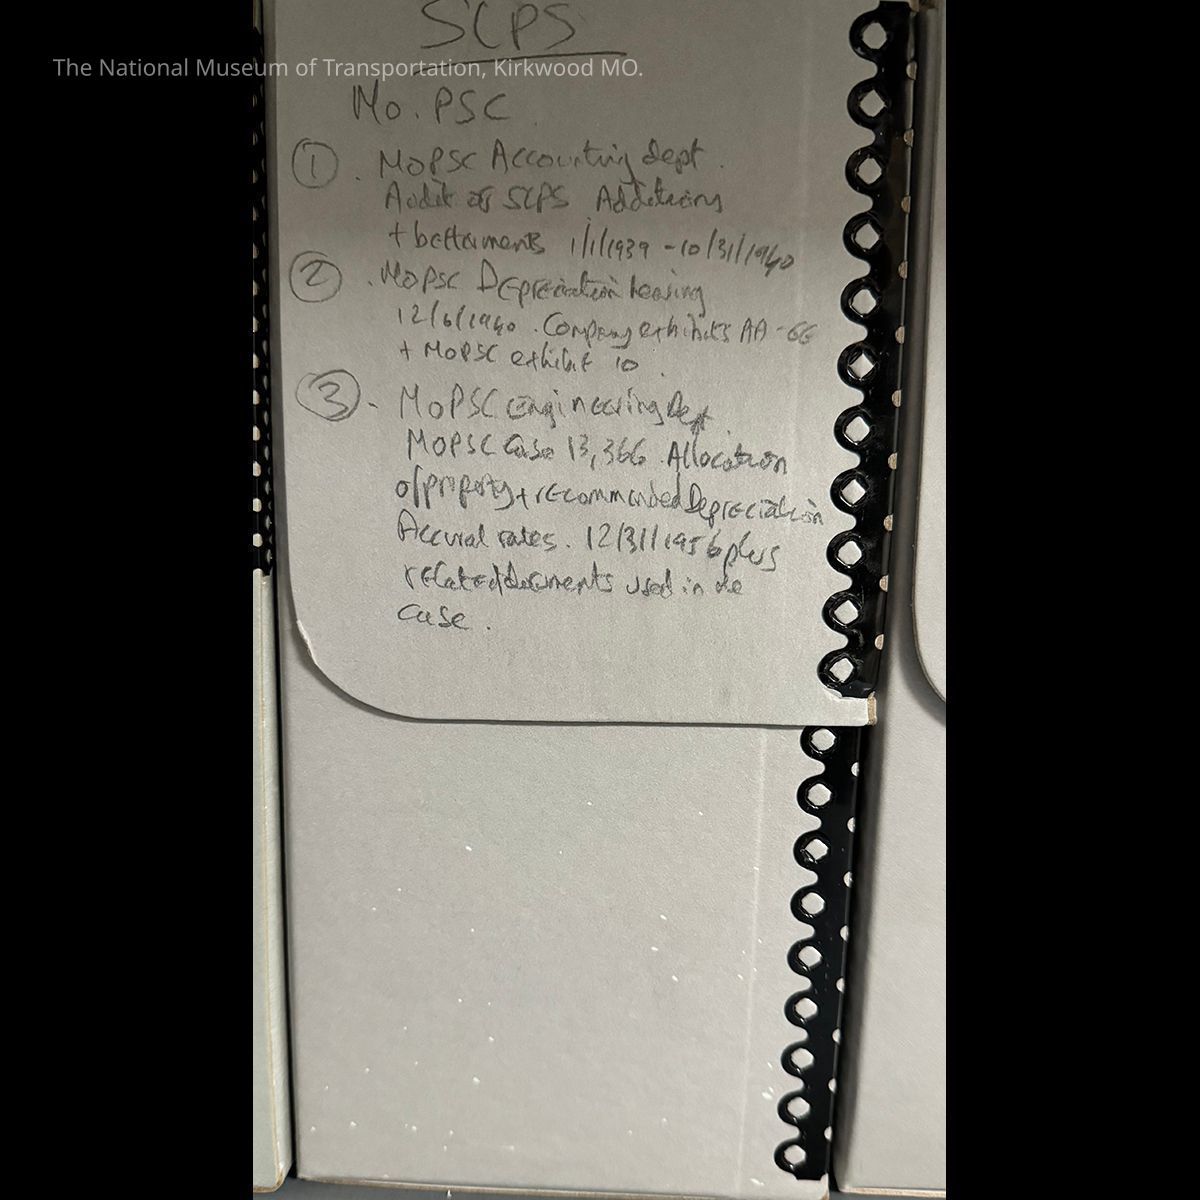 SLPS
The National Museum of Transportation, Kirkwood MO.
Mo. PSC
① . MOPSC Accounting dept.
Audit of SLPS Additions
+ betterments 1/1/1939 - 10/31/1940
② . MOPSC Depreciation hearing
12/6/1940. Company exhibits AA - GG
+ MOPSC exhibit 10.
③ - MOPSC engineering Dept
MOPSC case 13,366 Allocation
of property + recommended Depreciation
Accural rates. 12/31/1956 plus
related documents used in the
case.